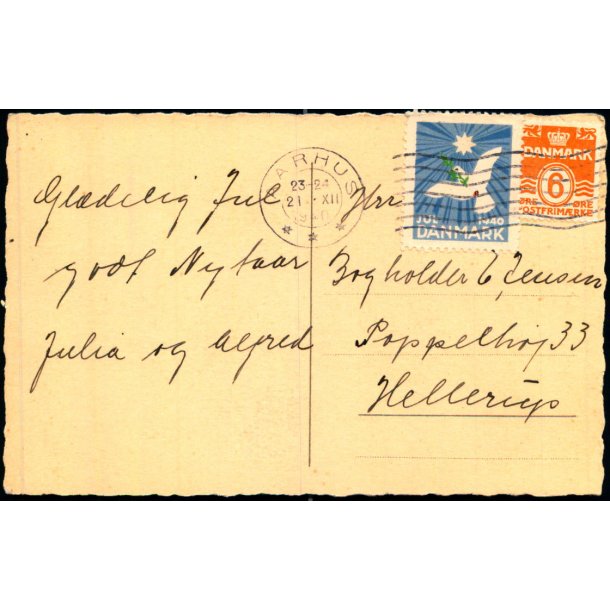 AARHUS
23-24
21 · XII
1940
JUL 1940
DANMARK
DANMARK
6
ØRE ØRE
POSTFRIMÆRKE
Glædelig Jul
godt Nytaar
Julia og Alfred
Hrr
Bogholder E, Jensen
Poppelhøj 33
Hellerup